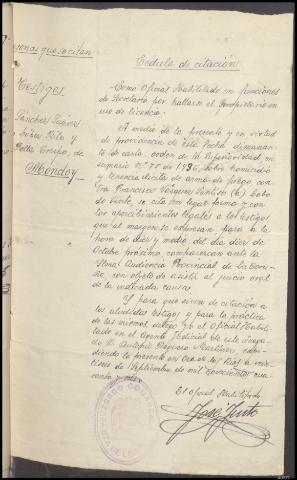 Personas que se citan
Testigos
Sánchez Juana
Isaura Rila y
Pella Crespo, de
Mondoy=
Cédula de citación
Como Oficial Habilitado en funciones
de Secretario por hallarse el Propietario en
uso de licencia
A medio de la presente y en virtud
de providencia de esta fecha dimanan-
te de carta-orden de la Superioridad en
sumario nº 75 de 1936, sobre homicidio
y tenencia ilícita de arma de fuego con-
tra Francisco (a) Lobo
de Verde, se cita en legal forma y con
los apercibimientos legales a los testigos
que al margen se expresan, para a la
hora de diez y media del día diez de
Octubre próximo, comparezcan ante la
Ilma Audiencia Provincial de La Coru-
ña, con objeto de asistir al juicio oral
de la indicada causa.
Y para que sirva de citación a
los aludidos testigos y para la práctica
de las mismas entrego yo el Oficial Habili-
tado en el Agente Judicial de este Juzga-
do D. Antonio Martínez, expi-
diendo la presente en a vein-
tiseis de Septiembre de mil novecientos cua-
renta y
El Oficial Habilitado
José Justo